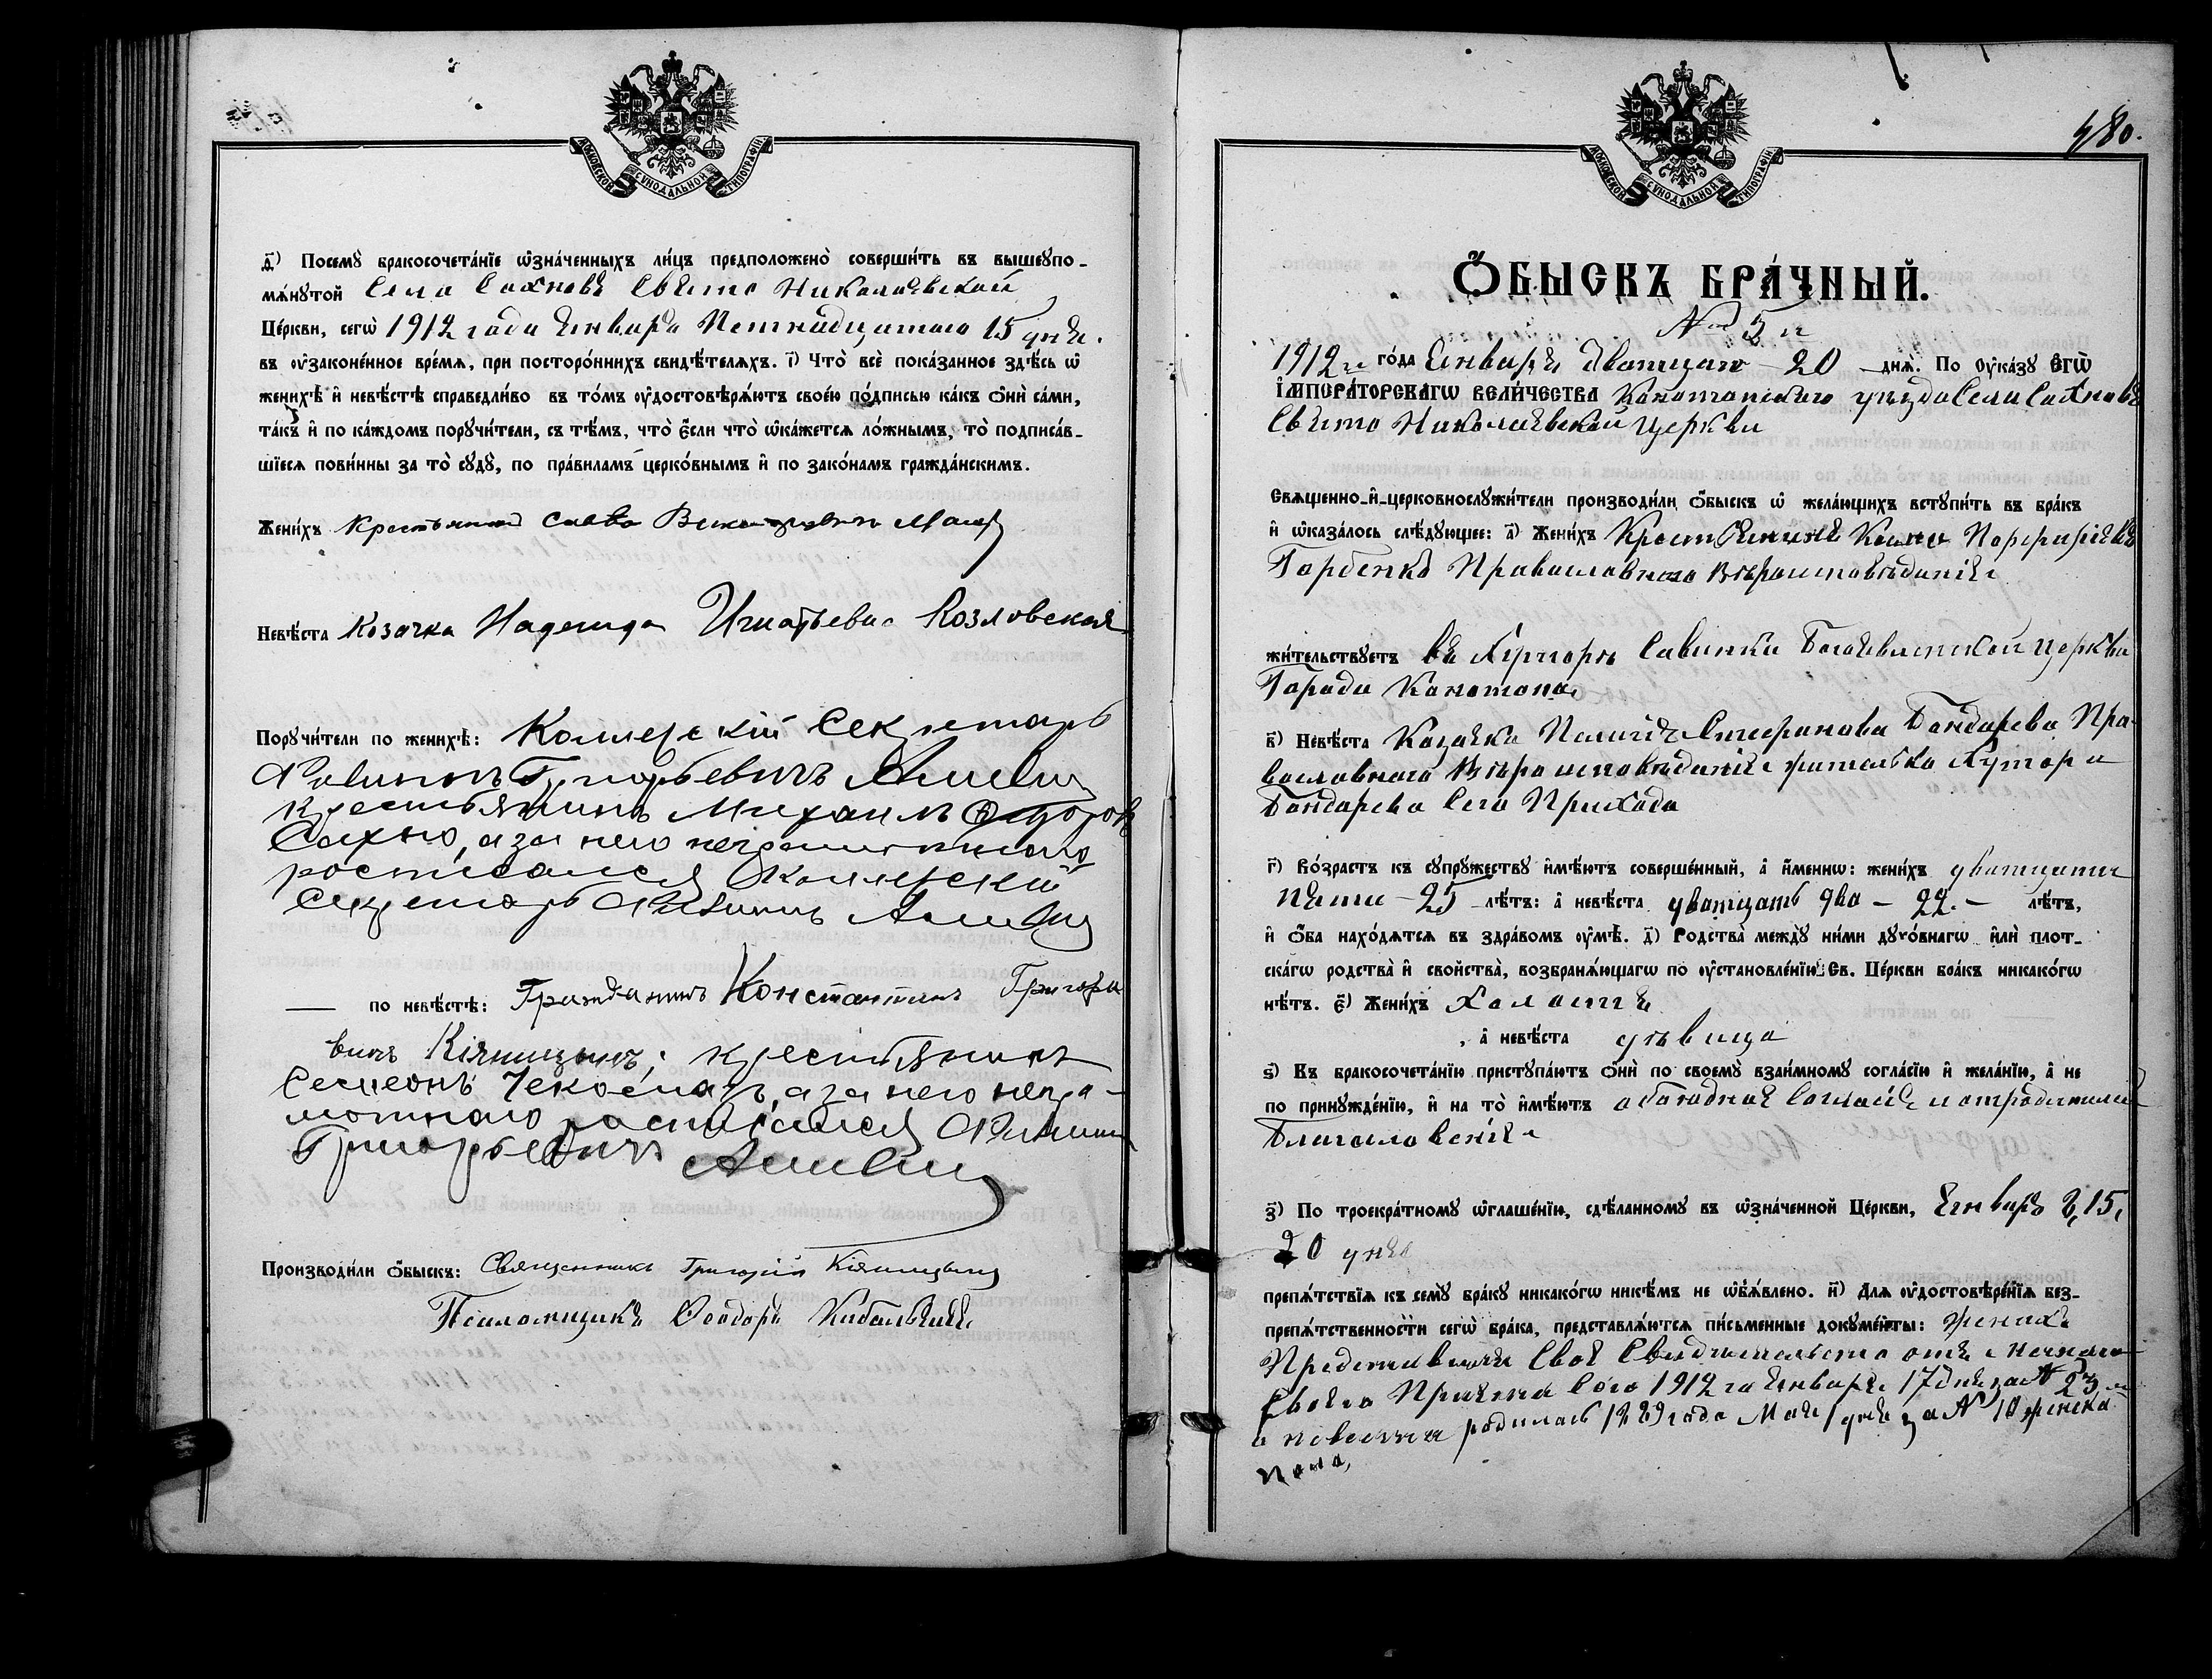 МОСКОВСКОЙ СѴНОДАЛЬНОЙ ТИПОГРАФІИ
д҃) Посемꙋ̀ бракосочета́нїе ѡ҆зна́ченныхъ ли́цъ предположено̀ соверши́ть въ вышеꙋпо-
мѧ́нꙋтой Села Сахновъ Свято Николаевской
Це́ркви, сегѡ̀ 1912 года Января Пятнадцатого 15 дня.
въ ᲂу҆законе́нное вре́мѧ, при посторо́ннихъ свидѣ́телѧхъ. і҃) Что̀ всѐ пока́занное здѣ́сь ѡ҆
женихѣ̀ и҆ невѣ́стѣ справедли́во въ то́мъ ᲂу҆достовѣрѧ́ютъ свое́ю по́дписью ка́къ ѻ҆нѝ са́ми,
та́къ и҆ по ка́ждомъ порꙋчи́тели, съ тѣ́мъ, что̀ є҆́сли что̀ ѡ҆ка́жетсѧ ло́жнымъ, то̀ подписа́в-
шїесѧ пови́нны за то̀ сꙋдꙋ̀, по пра́виламъ церко́внымъ и҆ по зако́намъ гражда́нскимъ.
Жени́хъ Крестьянинъ Савва
Невѣ́ста Козачка Надежда Игнатьева Козловская
Порꙋчи́тели по женихѣ̀: Коллежскій Секретарь
Григорьевичъ
Крестьянинъ Михаилъ Ѳедоров
Сахно, а за него неграмотного
росписался Коллежскій
Секретарь
по невѣ́стѣ: Гражданинъ Константинъ Григорье
вичъ Кіяницынъ; крестьянинъ
Семеонъ а за него негра-
мотного росписался
Григорьевичъ
Производи́ли ѻ҆́быскъ: Священникъ Григорій Кіяницынъ
Псаломщикъ Ѳеодоръ Кибальчичъ
480.
МОСКОВСКОЙ СѴНОДАЛЬНОЙ ТИПОГРАФІИ
Ѻ҆́БЫСКЪ БРА́ЧНЫЙ.
№ 5й
1912 го́да Января дватцаго 20 днѧ̀. По ᲂу҆ка́зꙋ Є҆ГѠ̀
І҆МПЕРА́ТОРСКАГѠ ВЕЛИ́ЧЕСТВА Конотопского уѣзда Села Сахновъ
Свято Николаевской Церкви
Свѧщенно-и҆-церковнослꙋжи́тели производи́ли ѻ҆́быскъ ѡ҆ жела́ющихъ встꙋпи́ть въ бра́къ
и҆ ѡ҆каза́лось слѣ́дꙋющее: а҃) Жени́хъ Крестянинъ Порфиріевъ
Горбенко Православного Вѣроисповѣданія
жи́тельствꙋетъ въ Хуторѣ Савинки Богоявленской Церкви
Города Конотопа
в҃) Невѣ́ста Казачка Стефанова Бондарева Пра-
вославного Вѣроисповѣданія жителька Хутора
Бондарева Сего Прихода
г҃) Во́зрастъ къ сꙋпрꙋ́жествꙋ и҆мѣ́ютъ соверше́нный, а҆ и҆́меннѡ: жени́хъ дватцати
пяти - 25 лѣ́тъ: а҆ невѣ́ста дватцать два - 22. - лѣ́тъ,
и҆ ѻ҆́ба нахо́дѧтсѧ въ здра́вомъ ᲂу҆мѣ̀. д҃) Родства̀ междꙋ̀ ни́ми дꙋхо́внагѡ и҆лѝ плот-
ска́гѡ родства̀ и҆ свойства̀, возбранѧ́ющагѡ по ᲂу҆становле́нїю Св. Це́ркви бра́къ никако́гѡ
нѣ́тъ. є҃) Жени́хъ Холостъ
, а҆ невѣ́ста дѣвица
ѕ҃) Къ бракосочета́нїю пристꙋпа́ютъ ѻ҆нѝ по своемꙋ̀ взаи́мномꙋ согла́сїю и҆ жела́нїю, а҆ не
по принꙋжде́нїю, и҆ на то̀ и҆мѣ́ютъ обоюдное Согласіе и отродителей
Благословенія
з҃) По троекра́тномꙋ ѡ҆глаше́нїю, сдѣ́ланномꙋ въ ѡ҆зна́ченной Це́ркви, Января 8, 15,
20 дня
препѧ́тствїѧ къ семꙋ̀ бра́кꙋ никако́гѡ никѣ́мъ не ѡ҆б̾ѧ́влено. и҃) Длѧ ᲂу҆достовѣре́нїѧ без-
препѧ́тственности сегѡ̀ бра́ка, представлѧ́ютсѧ пи́сьменные докꙋме́нты: Женихъ
Предоставилъ Своѣ Свидѣтельство отъ
Своего Причта Сего 1912 го Января 17 дня за № 23
а невеста родилась 1889 года Мая 1 дня за № 10 женска
пола,